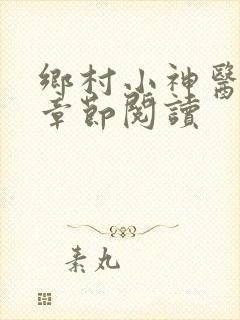 鄉村小神醫
章節閱讀
素丸